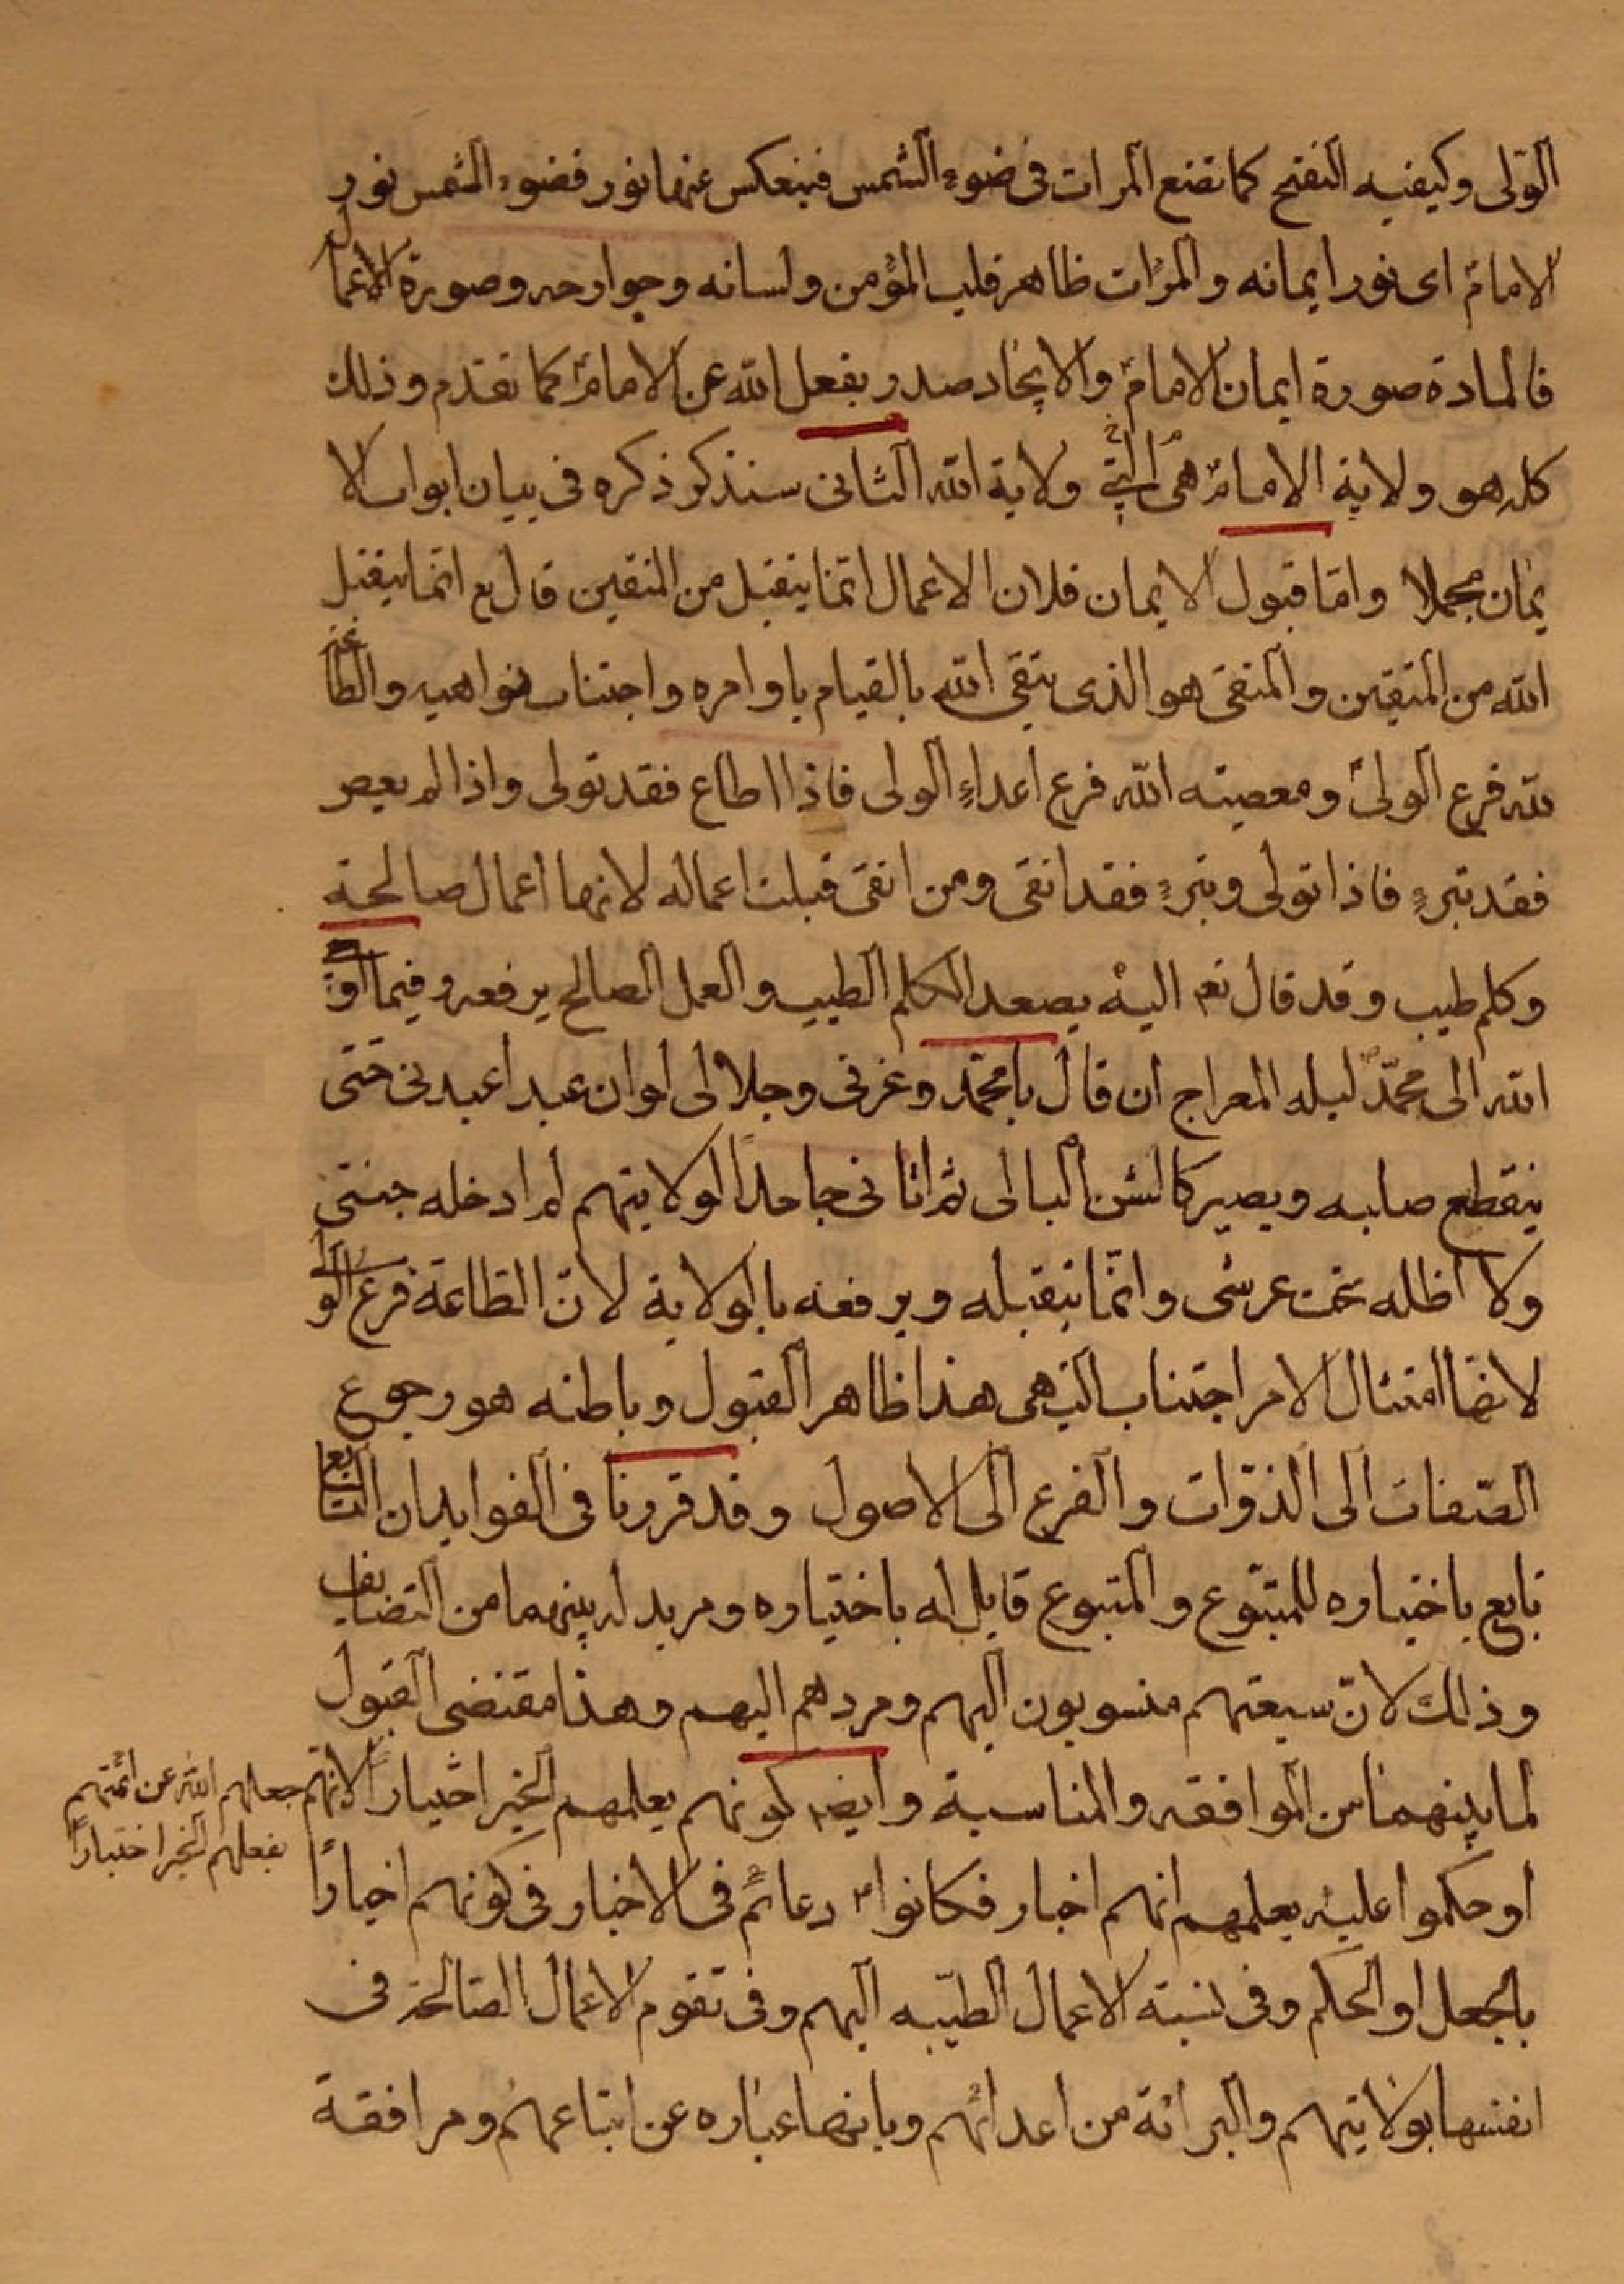 الولى وكيفيه النفتح كما تضع المرات فى ضوء الشمس فينعكس عنها نور فضوء الشمس نور
الامام اى نور ايمانه والمرات ظاهر قلب المؤمن ولسانه وجوارحه وصورة الاعمال
فالمادة صورة ايمان الامام والايجاد صدر بفعل الله عن الامام كما تقدم وذلك
كله هو ولاية الامام هى التى ولاية الله الثانى سنذكر ذكره فى بيان ابواب الا
يمان مجملا واما قبول الايمان فلان الاعمال انما يتقبل من المتقين قال تع انما يتقبل
الله من المتقين والمتقى هو الذى يتقى الله بالقيام باوامره واجتناب نواهيه والطاعة
لله فرع الولى ومعصيته الله فرع اعداء الولى فاذا اطاع فقد تولى واذا لم يعص
فقد تبرء فاذا تولى وتبرء فقد اتقى ومن اتقى قبلت اعماله لانها اعمال صالحة
وكلم طيب وقد قال تعم اليه يصعد الكلم الطيب والعمل الصالح يرفعه وفيما اوحى
الله الى محمد ليله المعراج ان قال يا محمد وعزتى وجلالى لو ان عبدا عبدنى حتى
ينقطع صلبه ويصير كالشن البالى ثم اتانى جاحدا لولايتهم لم ادخله جنتى
ولا اظله تحت عرشى وانما يتقبله ويرفعه بالولاية لان الطاعة فرع الولى
لانها امتثال الامر اجتناب النهى هذا ظاهر القبول وباطنه هو رجوع
الصفات الى الذوات والفرع الى الاصول وقد قررنا فى الفوايد ان التابع
تابع باختياره للمتبوع والمتبوع قابل له باختياره ومريد له بينهما من التضايف
وذلك لان سيعتهم منسوبون اليهم ومردهم اليهم وهذا مقتضى القبول
لما بينهما من الموافقه والمناسبة وايضا كونهم يعلمهم الخير اختيارا لانهم جعلهم الله عن ائمتهم
بفعلهم الخير اختيارا
او حكموا عليه بعلمهم انهم اخيار فكانوا دعائم فى الاخبار فى كونهم اخيارا
بالجعل او الحكم وفى نسبة الاعمال الطيبه اليهم وفى تقوم الاعمال الصالحة فى
انفسها بولايتهم والبرائة من اعدائهم وبانها عباره عن اتباعهم ومرافقة